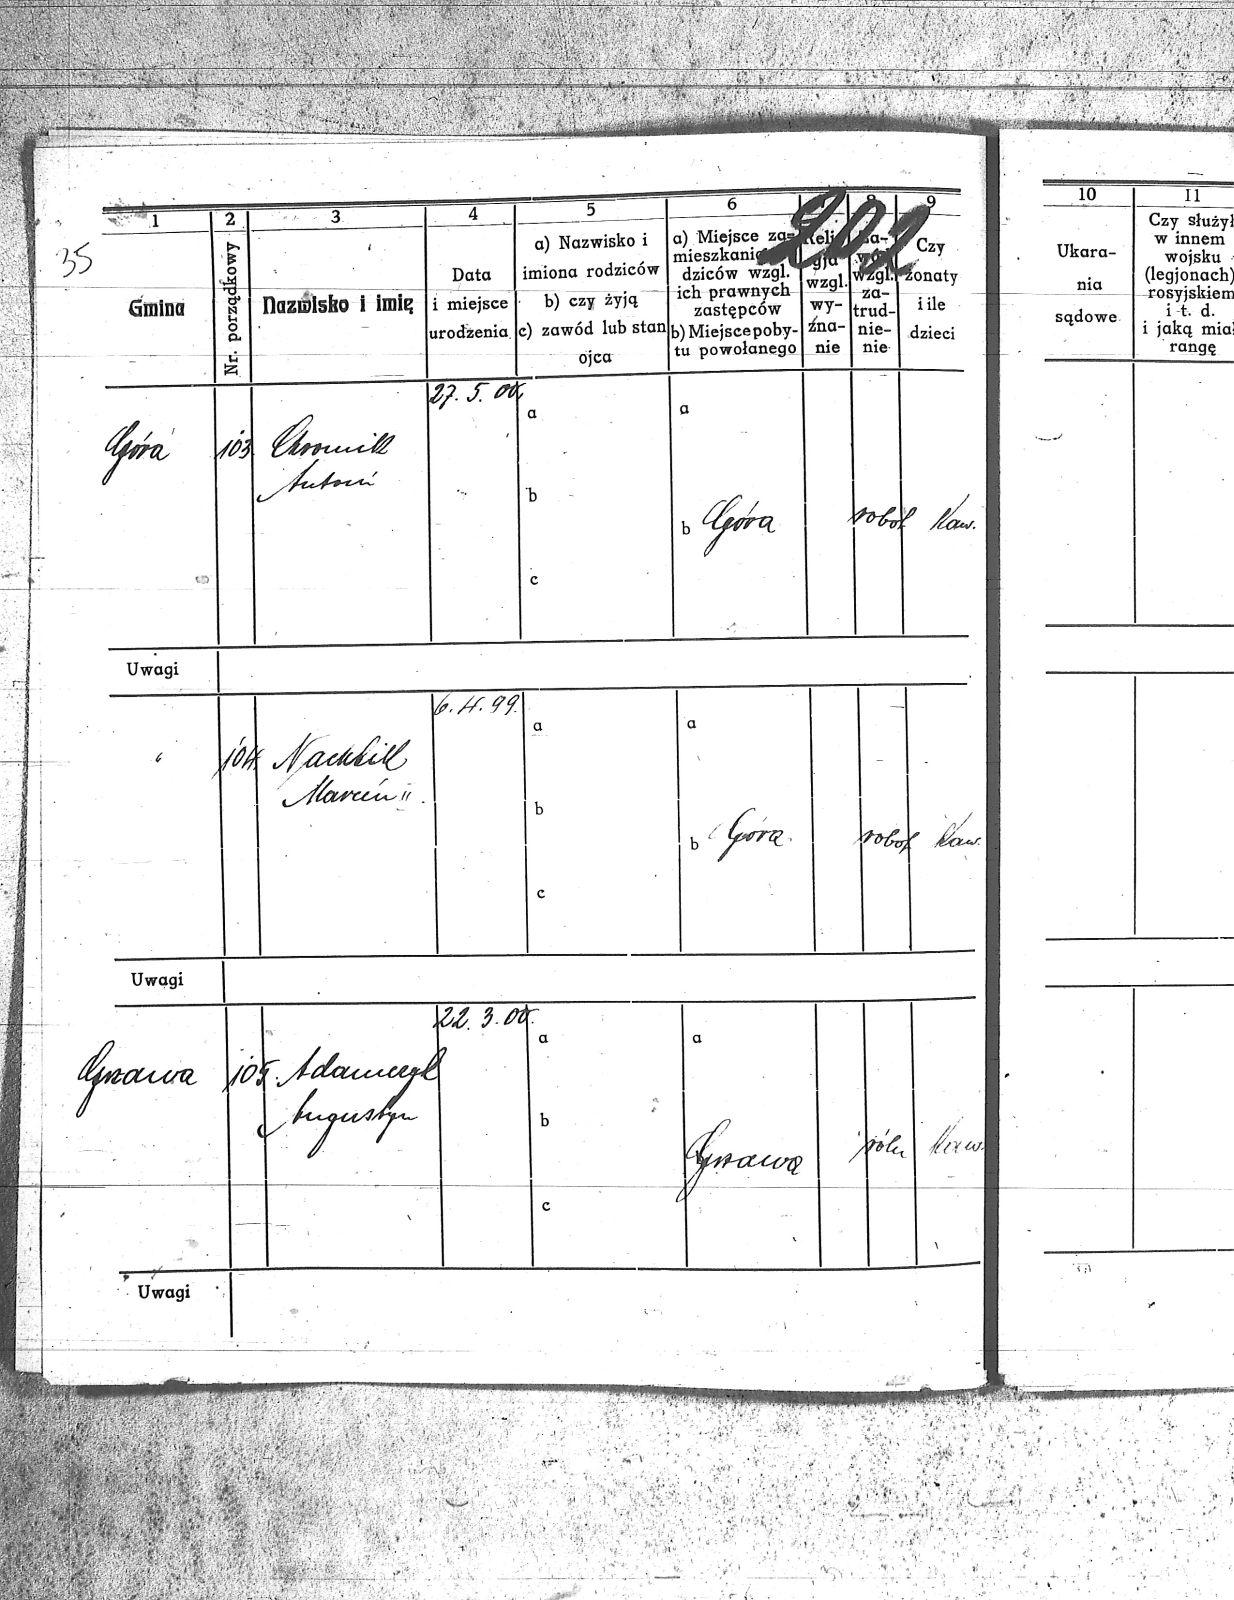 202
35
1 2 3 4 5 6 9 10 11
Gmina
Nr. porządkowy
Nazwisko i imię
Data
i miejsce
urodzenia
a) Nazwisko i
imiona rodziców
b) czy żyją
c) zawód lub stan
ojca
a) Miejsce za-
dziców wzgl.
ich prawnych
zastępców
b) Miejsce poby-
tu powołanego
wzgl.
wy-
zna-
nie
wzgl.
za-
trud-
nie-
nie
Czy
żonaty
i ile
dzieci
Ukara-
nia
sądowe
Czy służył
w innem
wojsku
(legjonach)
rosyjskiem
i t. d.
i jaką miał
rangę
27. 5. 00.
a a
Góra 103. Chromik
Antoni
b
b Góra robot. Kaw.
c
Uwagi
6. 4. 99.
a a
" 104.
Marcin II.
b
b Góra. robot. Kaw.
c
Uwagi
22. 3. 00.
a a
Grzawa 105. Adamczyk
Augustyn
b
Grzawa roln Kaw.
c
Uwagi